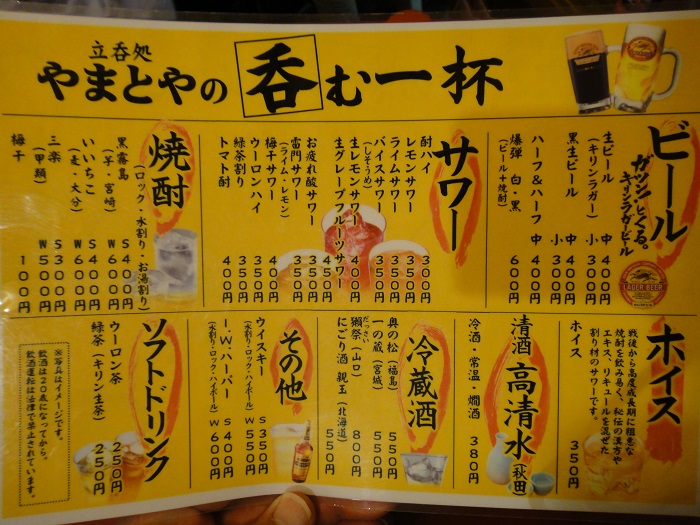 立呑処
やまとやの 呑む一杯
ビール
ガツン、とくる。
キリンラガービール
LAGER BEER
生ビール 中 400円
(キリンラガー) 小 300円
黒生ビール 中 400円
小 300円
ハーフ&ハーフ 中 400円
爆弾 白・黒 600円
(ビール+焼酎)
サワー
酎ハイ 300円
レモンサワー
ライムサワー
バイスサワー 350円
(しそ・うめ)
生レモンサワー 400円
生グレープフルーツサワー 450円
お疲れ酸サワー 350円
雷門サワー
(ライム・レモン)
梅干サワー 400円
ウーロンハイ 350円
緑茶割り
トマト酎 400円
焼酎
(ロック・水割り・お湯割り)
黒霧島 S 400円
(芋・宮崎) W 600円
いいちこ S 400円
(麦・大分) W 600円
三楽 S 300円
(甲類) W 500円
梅干 100円
ホイス
戦後から高度成長期に粗悪な
焼酎を飲み易く、秘伝の漢方や
エキス、リキュールを混ぜた
割り材のサワーです。
ホイス 350円
清酒 高清水 (秋田)
冷酒・常温・燗酒 380円
冷蔵酒
奥の松(福島) 550円
一の蔵(宮城) 550円
だっさい
獺祭(山口) 800円
にごり酒 親玉(北海道) 550円
その他
ウイスキー S 350円
(水割り・ロック・ハイボール) W 550円
I.W.ハーパー S 400円
(水割り・ロック・ハイボール) W 600円
ソフトドリンク
ウーロン茶 250円
緑茶(キリン生茶) 250円
※写真はイメージです。
飲酒は20歳になってから。
飲酒運転は法律で禁止されています。